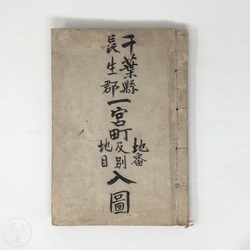 千葉縣
長生郡
一宮町
地番
反別
地目
入圖